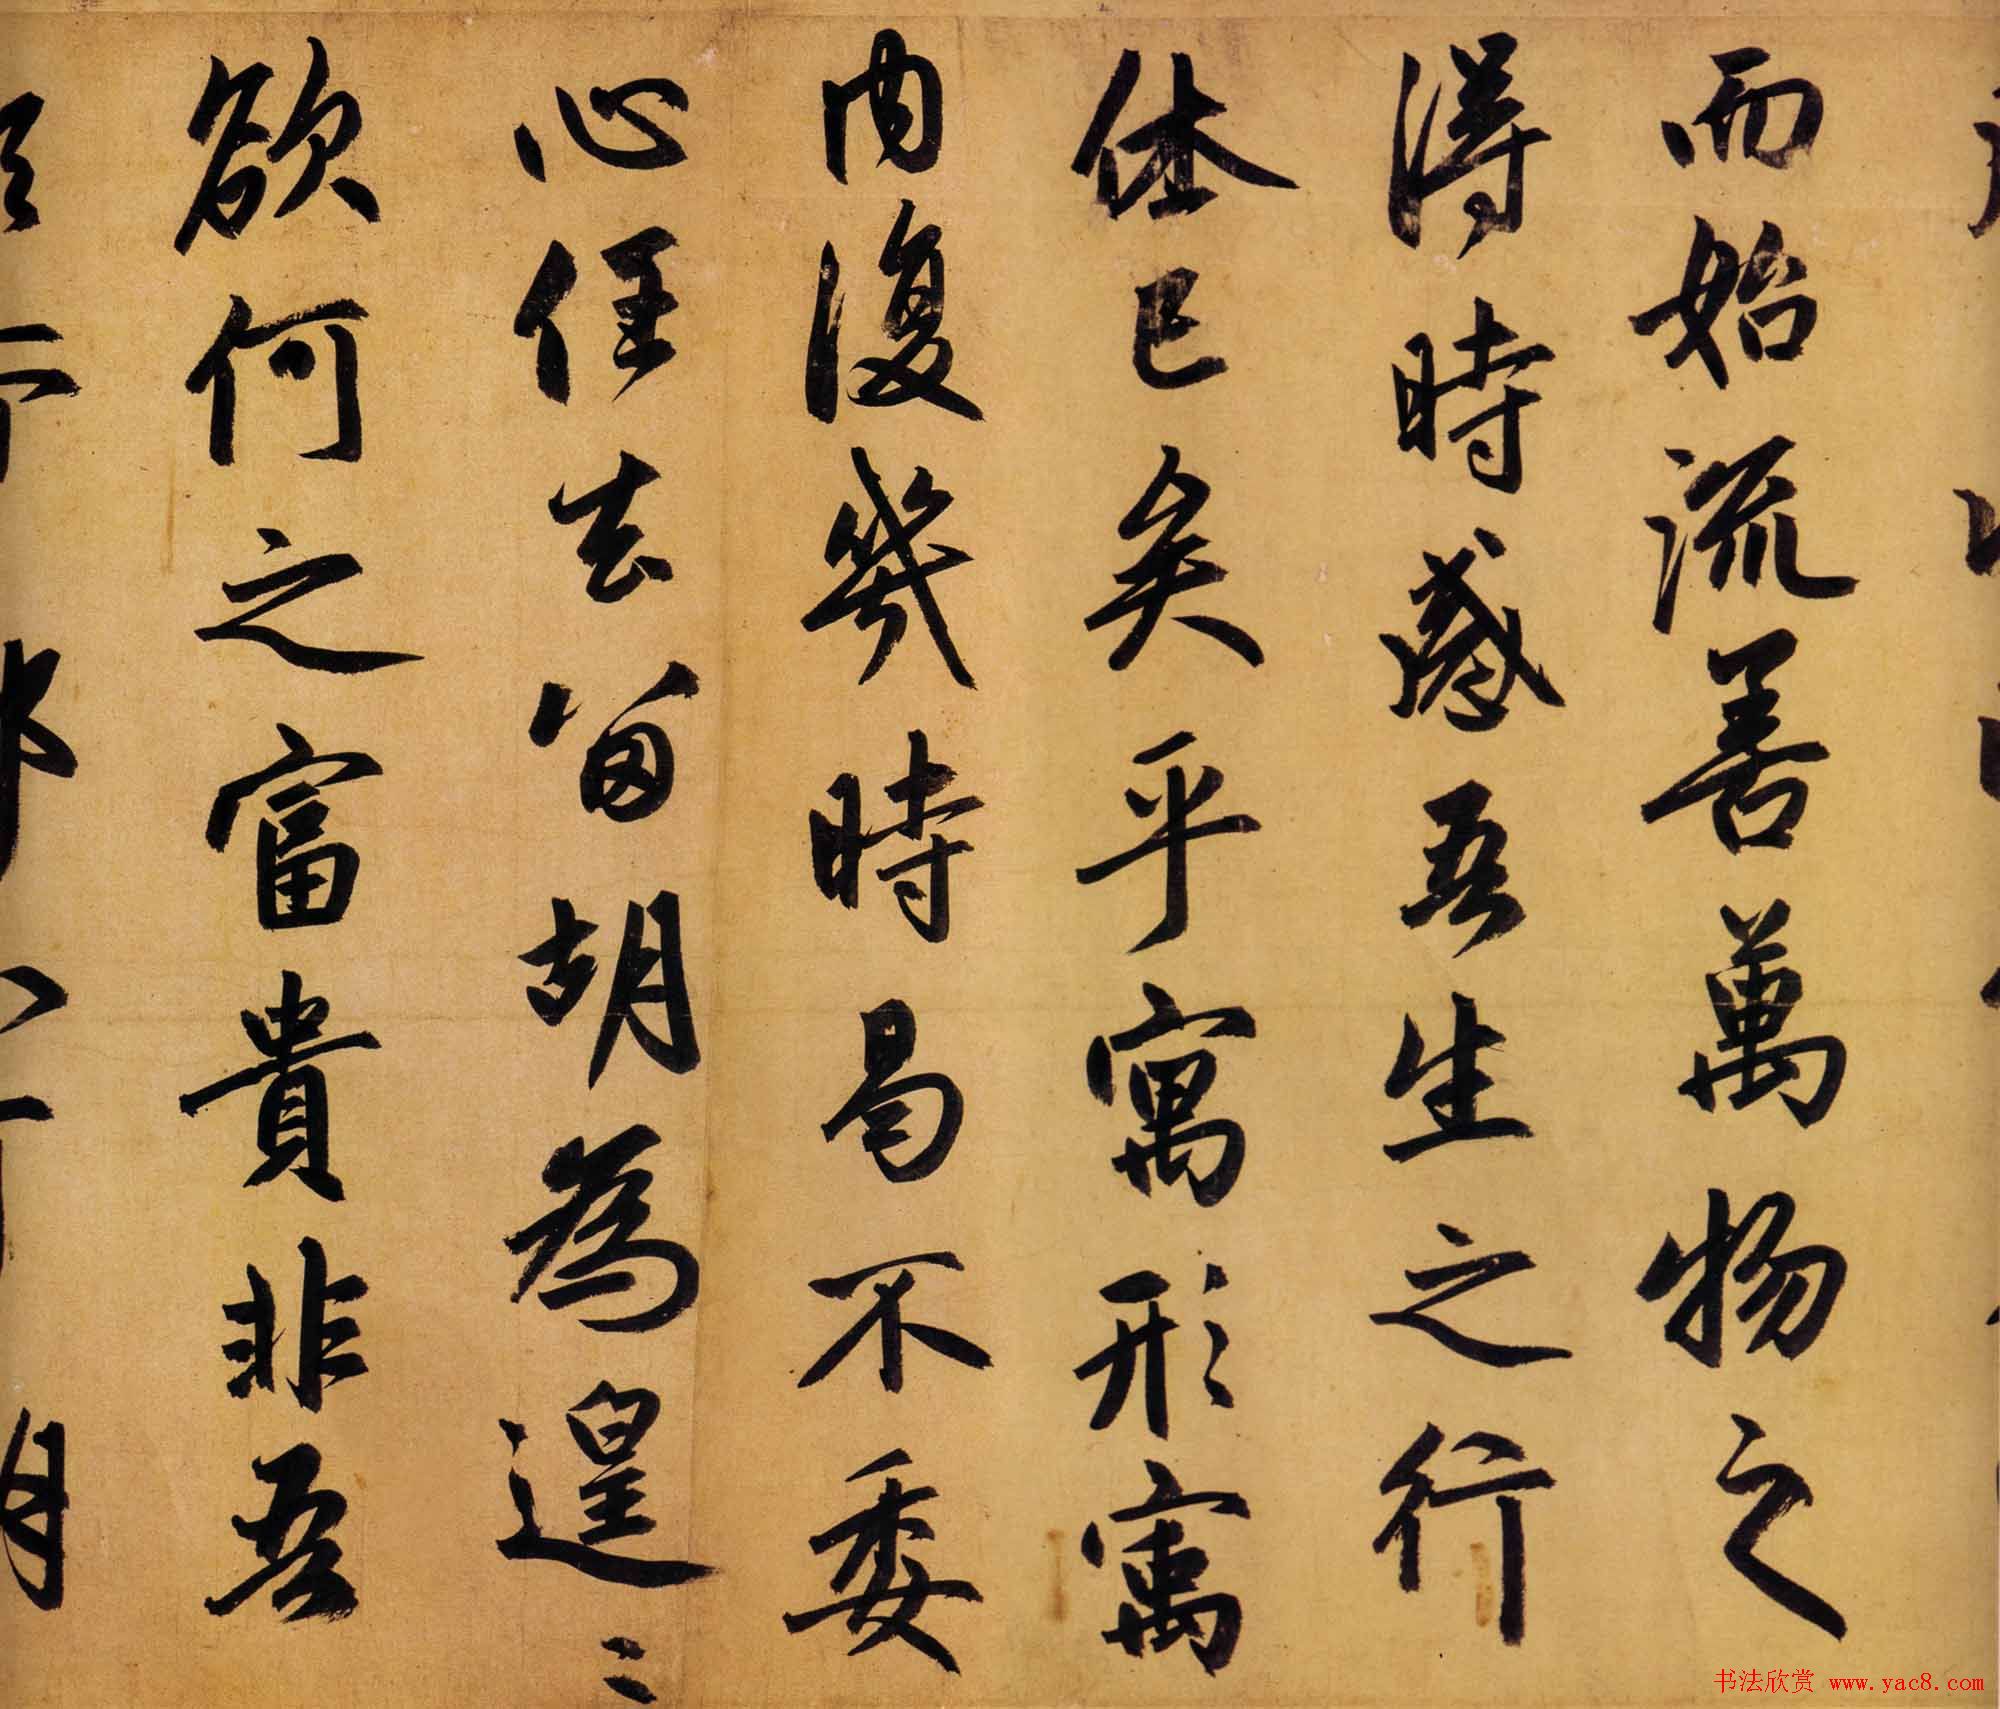 而始流善萬物之
得時感吾生之行
休已矣乎寓形寓
內復幾時曷不委
心任去留胡為遑〻
欲何之富貴非吾
书法欣赏 www.yac8.com